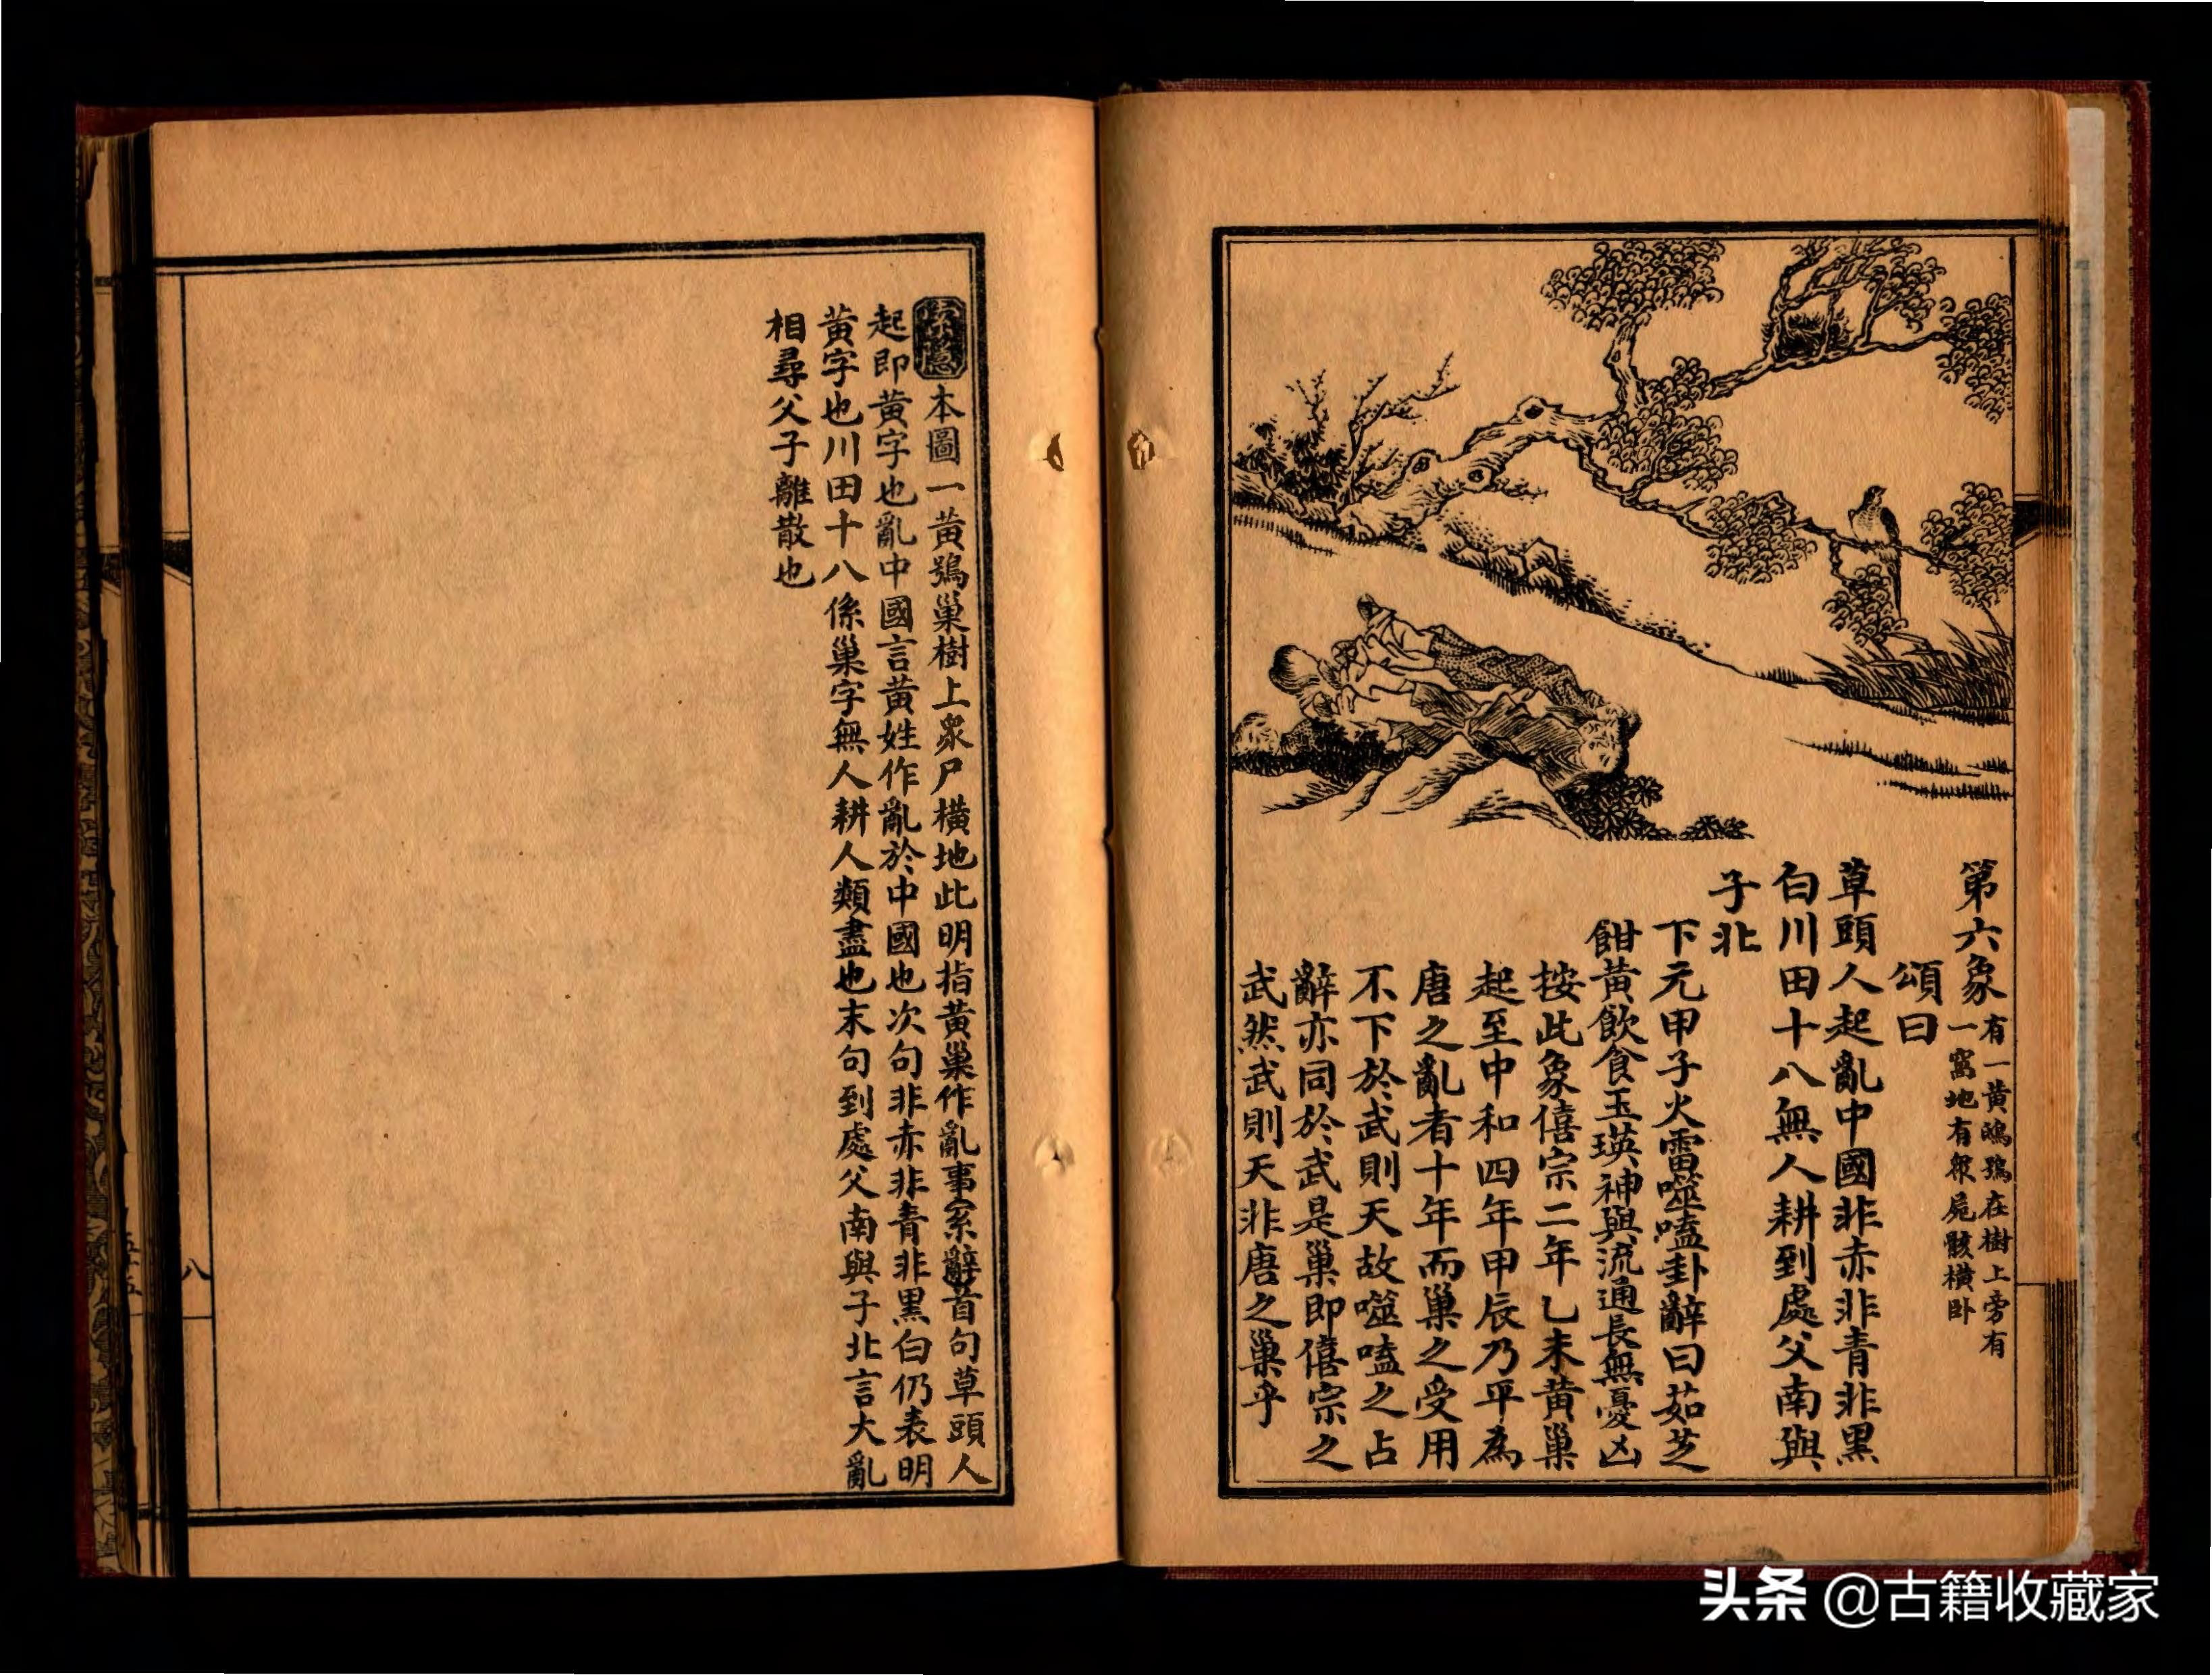 第六象
有一黃鴟鴞在樹上旁有
一窩地有衆屍骸橫卧
頌曰
草頭人起亂中國非赤非青非黑
白川田十八無人耕到處父南與
子北
下元甲子火雷噬嗑卦辭曰茹芝
餌黃飲食玉瑛神與流通長無憂凶
按此象僖宗二年乙未黃巢
起至中和四年甲辰乃平為
唐之亂者十年而巢之受用
不下於武則天故噬嗑之占
辭亦同於武是巢即僖宗之
武然武則天非唐之巢乎
本圖一黃鴞巢樹上衆尸橫地此明指黃巢作亂事案辭首句草頭人
起即黃字也亂中國言黃姓作亂於中國也次句非赤非青非黑白仍表明
黃字也川田十八係巢字無人耕人類盡也末句到處父南與子北言大亂
相尋父子離散也
八
头条 @古籍收藏家